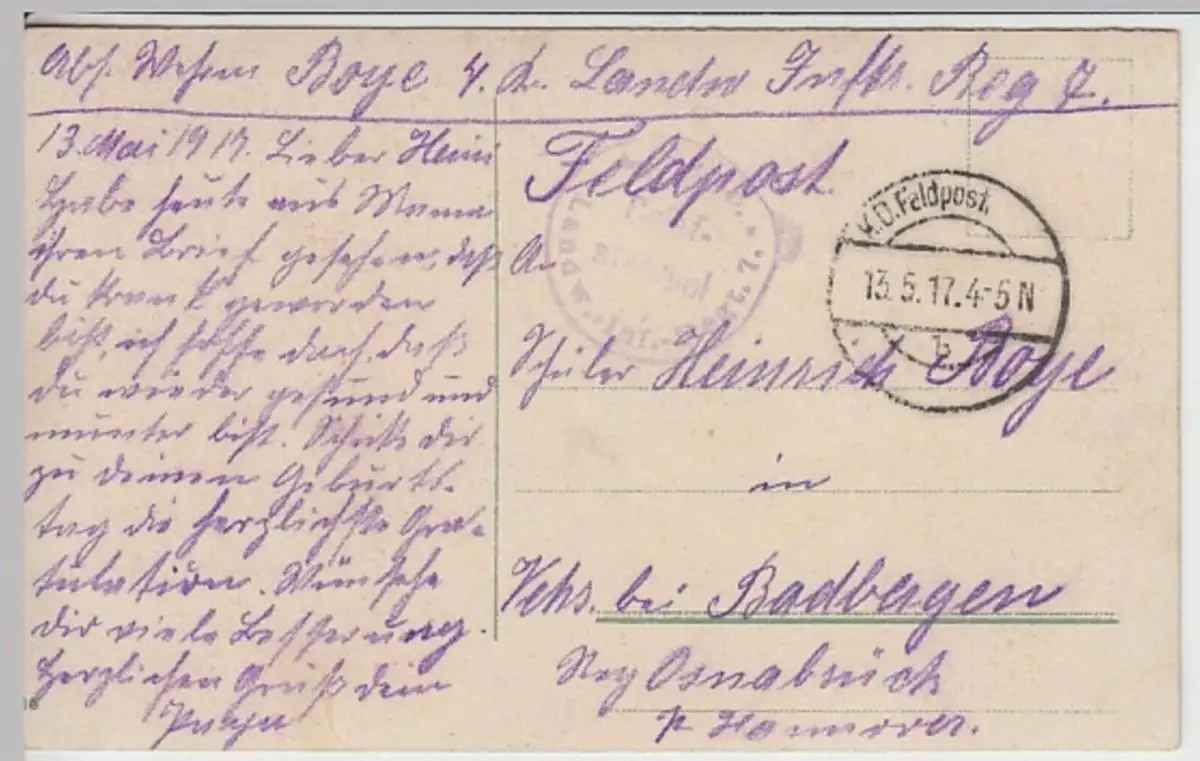 Abs. Wehrm Boye 4. K. Landw Inftr. Reg 7.
13. Mai 1917. Lieber Heini
Habe heute aus Mama
ihren Brief gesehen, daß
du krank geworden
bist, ich hoffe doch, daß
du wieder gesund und
munter bist. Schicke dir
zu deinen Geburts-
tag die herzlichste Gra-
tulation. Wünsche
dir viele Besserung.
Herzlichen Gruß dein
Papa
Feldpost
An
Schüler Heinrich Boye
in
Vehs. bei Badbergen
Reg Osnabrück
Pr Hannover.
K.D. Feldpost.
13.5.17. 4-5 N
b
Landw.-Inf.-Regt. 7.